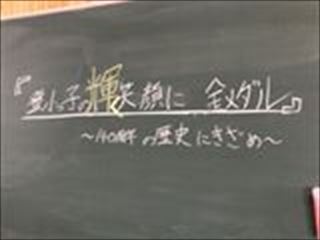 『愛小っ子の輝く笑顔に 金メダル』
～140周年の歴史にきざめ～